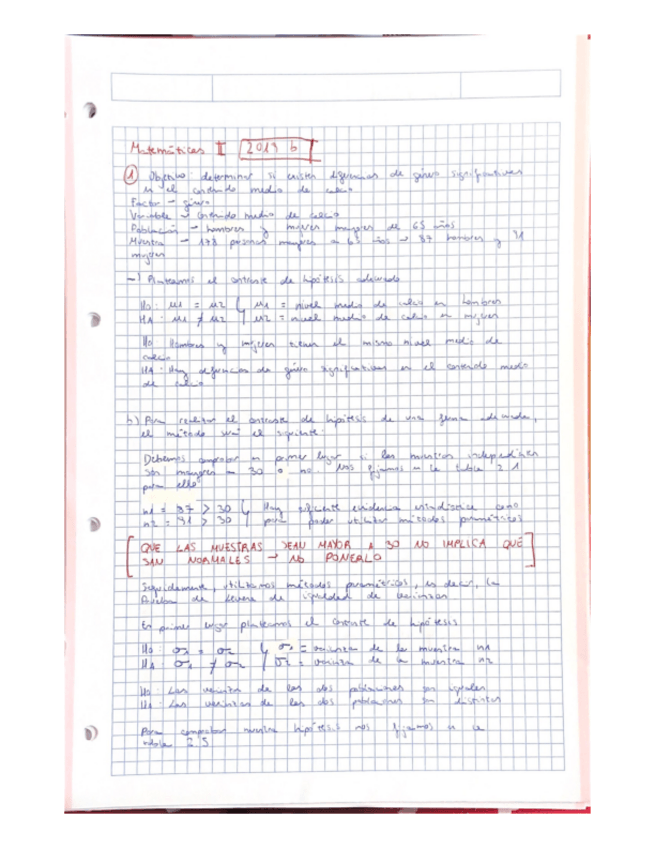 Matemáticas II 2019 b
1 Objetivo: determinar si existen diferencias de género significativas
en el contenido medio de calcio
Factor - género
Variable → contenido medio de calcio
Población → hombres y mujeres mayores de 65 años
Muestra → 178 personas mayores a 65 años → 87 hombres y 91
mujeres
Planteamos el contraste de hipótesis adecuado
H0: μ1 = μ2 μ1 = nivel medio de calcio en hombres
HA: μ1 ≠ μ2 μ2 = nivel medio de calcio en mujeres
H0: Hombres y mujeres tienen el mismo nivel medio de
calcio
HA: Hay diferencias de género significativas en el contenido medio
de calcio
b) Para realizar el contraste de hipótesis de una forma adecuada,
el método será el siguiente:
Debemos comprobar en primer lugar si las muestras independientes
son mayores a 30 o no. Nos fijamos en la tabla 2.1
para ello
n1 = 87 > 30 Hay suficiente evidencia estadística como
n2 = 91 > 30 para poder utilizar métodos paramétricos
QUE LAS MUESTRAS SEAN MAYOR A 30 NO IMPLICA QUE
SAN NORMALES → NO PONERLO
Seguidamente, utilizamos métodos paramétricos, es decir, la
Prueba de Levene de igualdad de varianzas
En primer lugar planteamos el contraste de hipótesis
H0: σ1 = σ2 σ1 = varianza de la muestra n1
HA: σ1 ≠ σ2 σ2 = varianza de la muestra n2
H0: Las varianzas de las dos poblaciones son iguales
HA: Las varianzas de las dos poblaciones son distintas
Para comprobar nuestra hipótesis nos fijamos en la
tabla 2.5